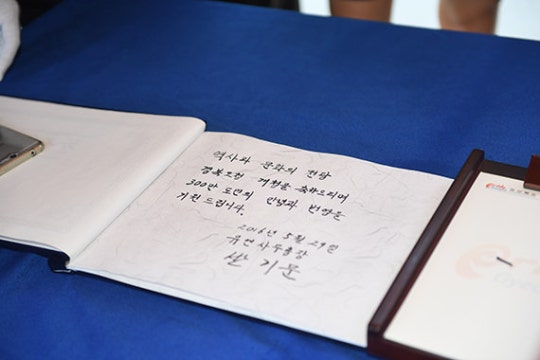 역사와 문화의 전당
경북도청 개청을 축하드리며
300만 도민의 안녕과 번영을
기원드립니다.
2016년 5월 29일
유엔사무총장
반기문